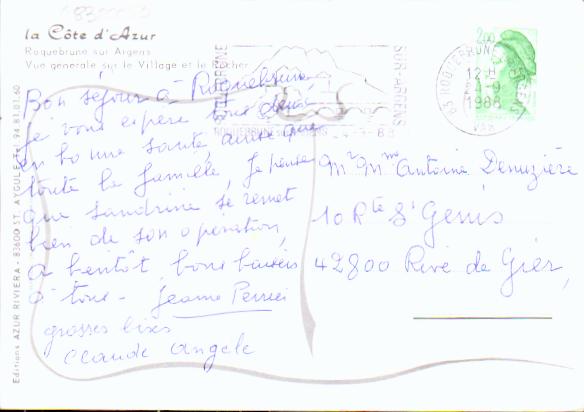 la Côte d'Azur
Roquebrune sur Argens
Vue generale sur le Village et le Rocher
Bon séjour à Roquebrune
je vous espère tous deux
en bonne santé, ainsi que
toute la famille, je pense
que Sandrine se remet
bien de son opération,
a bientôt, bons baisers
à tous - Jeanne Perrier
grosses bises
Claude Angele
Editions AZUR RIVIERA - 83600 ST. AYGULF Tél. 94.81.01.60
ROQUEBRUNE
SUR-ARGENS
83 ROQUEBRUNE S ARGENS
12 H
4-9
1988
VAR
2,00
Mr Mme Antoine Denuzière
10 Rte St Genis
42800 Rive de Gier,